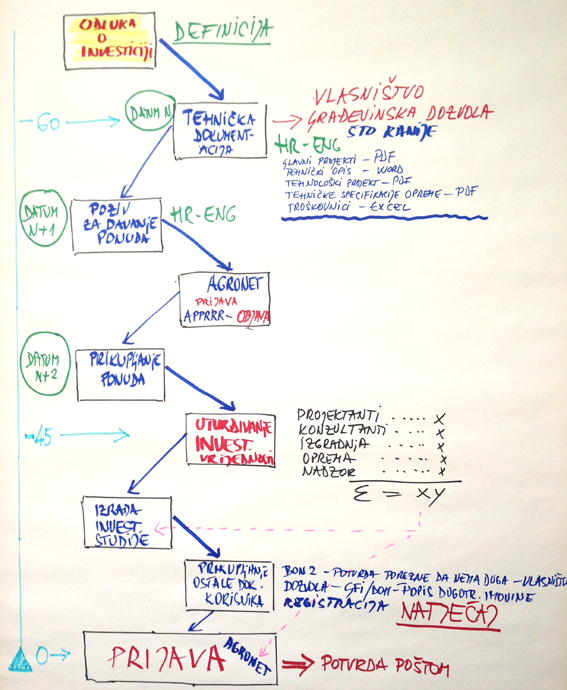 ODLUKA
O
INVESTICIJI
DEFINICIJA
-60
DATUM N
TEHNIČKA
DOKUMENT-
ACIJA
VLASNIŠTVO
GRAĐEVINSKA DOZVOLA
ŠTO RANIJE
HR-ENG
GLAVNI PROJEKTI - PDF
TEHNIČKI OPIS - WORD
TEHNOLOŠKI PROJEKT - PDF
TEHNIČKE SPECIFIKACIJE OPREME - PDF
TROŠKOVNICI - EXCEL
DATUM
N+1
POZIV
ZA DAVANJE
PONUDA
HR-ENG
AGRONET
PRIJAVA
APPRRR - OBJAVA
DATUM
N+2
PRIKUPLJANJE
PONUDA
-45
UTVRĐIVANJE
INVEST.
VRIJEDNOSTI
PROJEKTANTI ..... X
KONZULTANTI ..... X
IZGRADNJA ..... X
OPREMA ..... X
NADZOR ..... X
Σ = XY
IZRADA
INVEST.
STUDIJE
PRIKUPLJANJE
OSTALE DOK.
KORISNIKA
BON2 - POTVRDA POREZNE DA NEMA DUGA - VLASNIŠTV
DOZVOLA - GFI/DOH - POPIS DUGOTR. IMOVINE
REGISTRACIJA
NATJEČAJ
0
PRIJAVA
AGRONET
POTVRDA POŠTOM